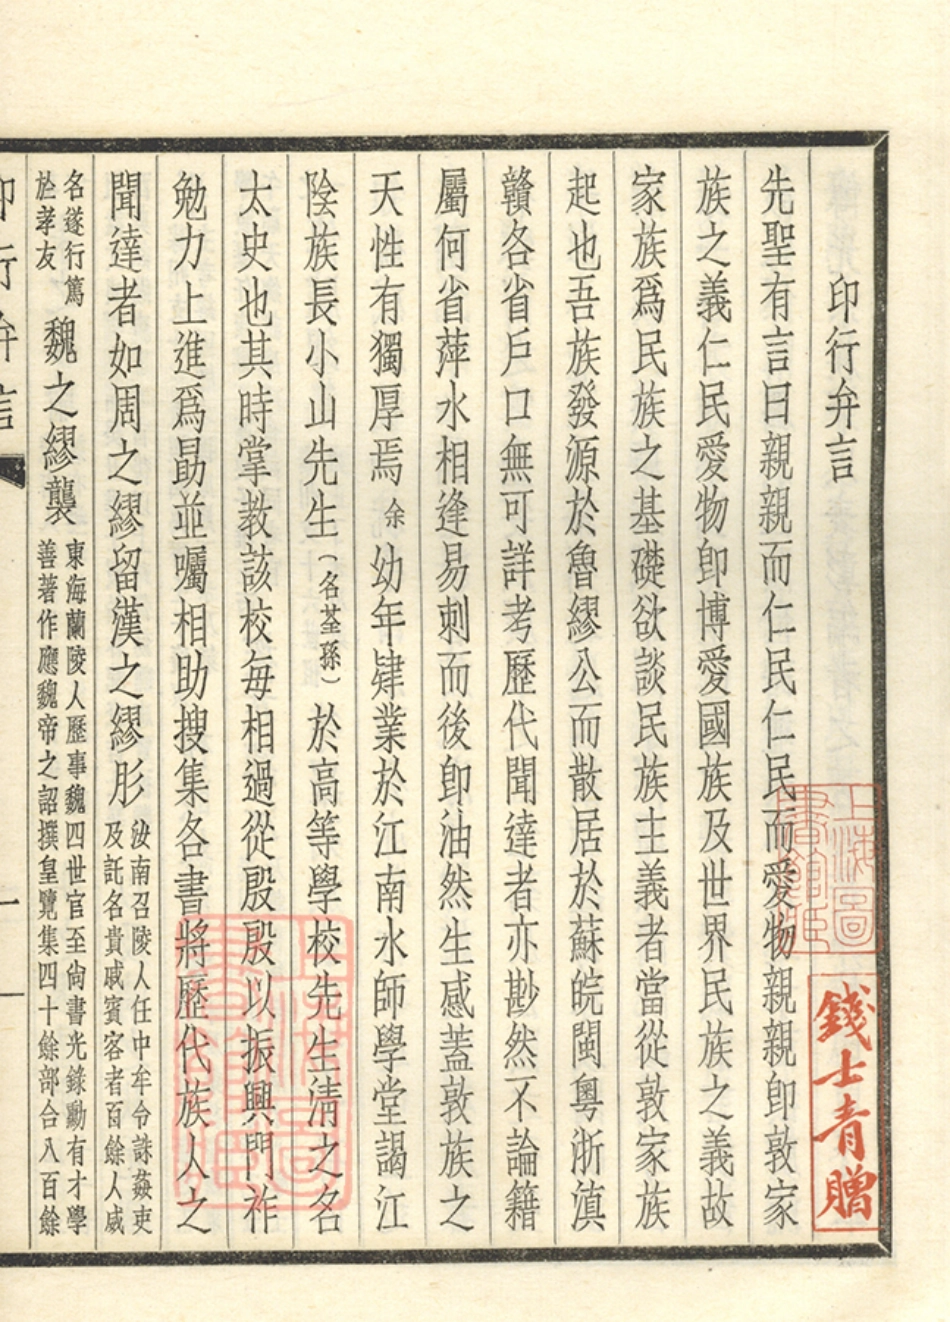 印行弁言
先聖有言曰親親而仁民仁民而愛物親親卽敦家
族之義仁民愛物卽博愛國族及世界民族之義故
家族爲民族之基礎欲談民族主義者當從敦家族
起也吾族發源於魯繆公而散居於蘇皖閩粵浙滇
贛各省戶口無可詳考歷代聞達者亦尠然不論籍
屬何省萍水相逢易刺而後卽油然生感蓋敦族之
天性有獨厚焉余幼年肄業於江南水師學堂謁江
陰族長小山先生（名荃孫）於高等學校先生淸之名
太史也其時掌教該校每相過從殷殷以振興門祚
勉力上進爲勗並囑相助搜集各書將歷代族人之
聞達者如周之繆留漢之繆肜
汝南召陵人任中牟令誅姦吏
及託名貴戚賓客者百餘人威
名遂行篤
於孝友
魏之繆襲
東海蘭陵人歷事魏四世官至尙書光錄勳有才學
善著作應魏帝之詔撰皇覽集四十餘部合八百餘
印行弁言
一
上海圖
書館藏
錢士青贈
上海圖
書館藏